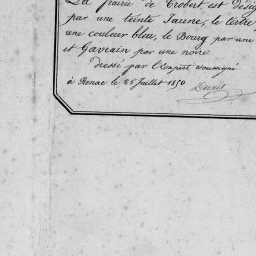 La prairie de Trobert est désig
par une teinte Jaune, le tertre
une couleur bleu, le Bourg par une
et Gavrain par une noire
dressé par l'Expert soussigné
à Renac le 25 Juillet 1850